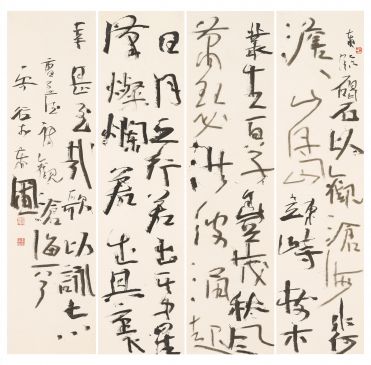 東臨碣石以觀滄海水何
澹澹山島竦峙樹木
叢生百草豐茂秋風
蕭瑟洪波涌起
日月之行若出其中星
漢燦爛若出其裏
幸甚至哉歌以詠志
曹孟德詩觀滄海